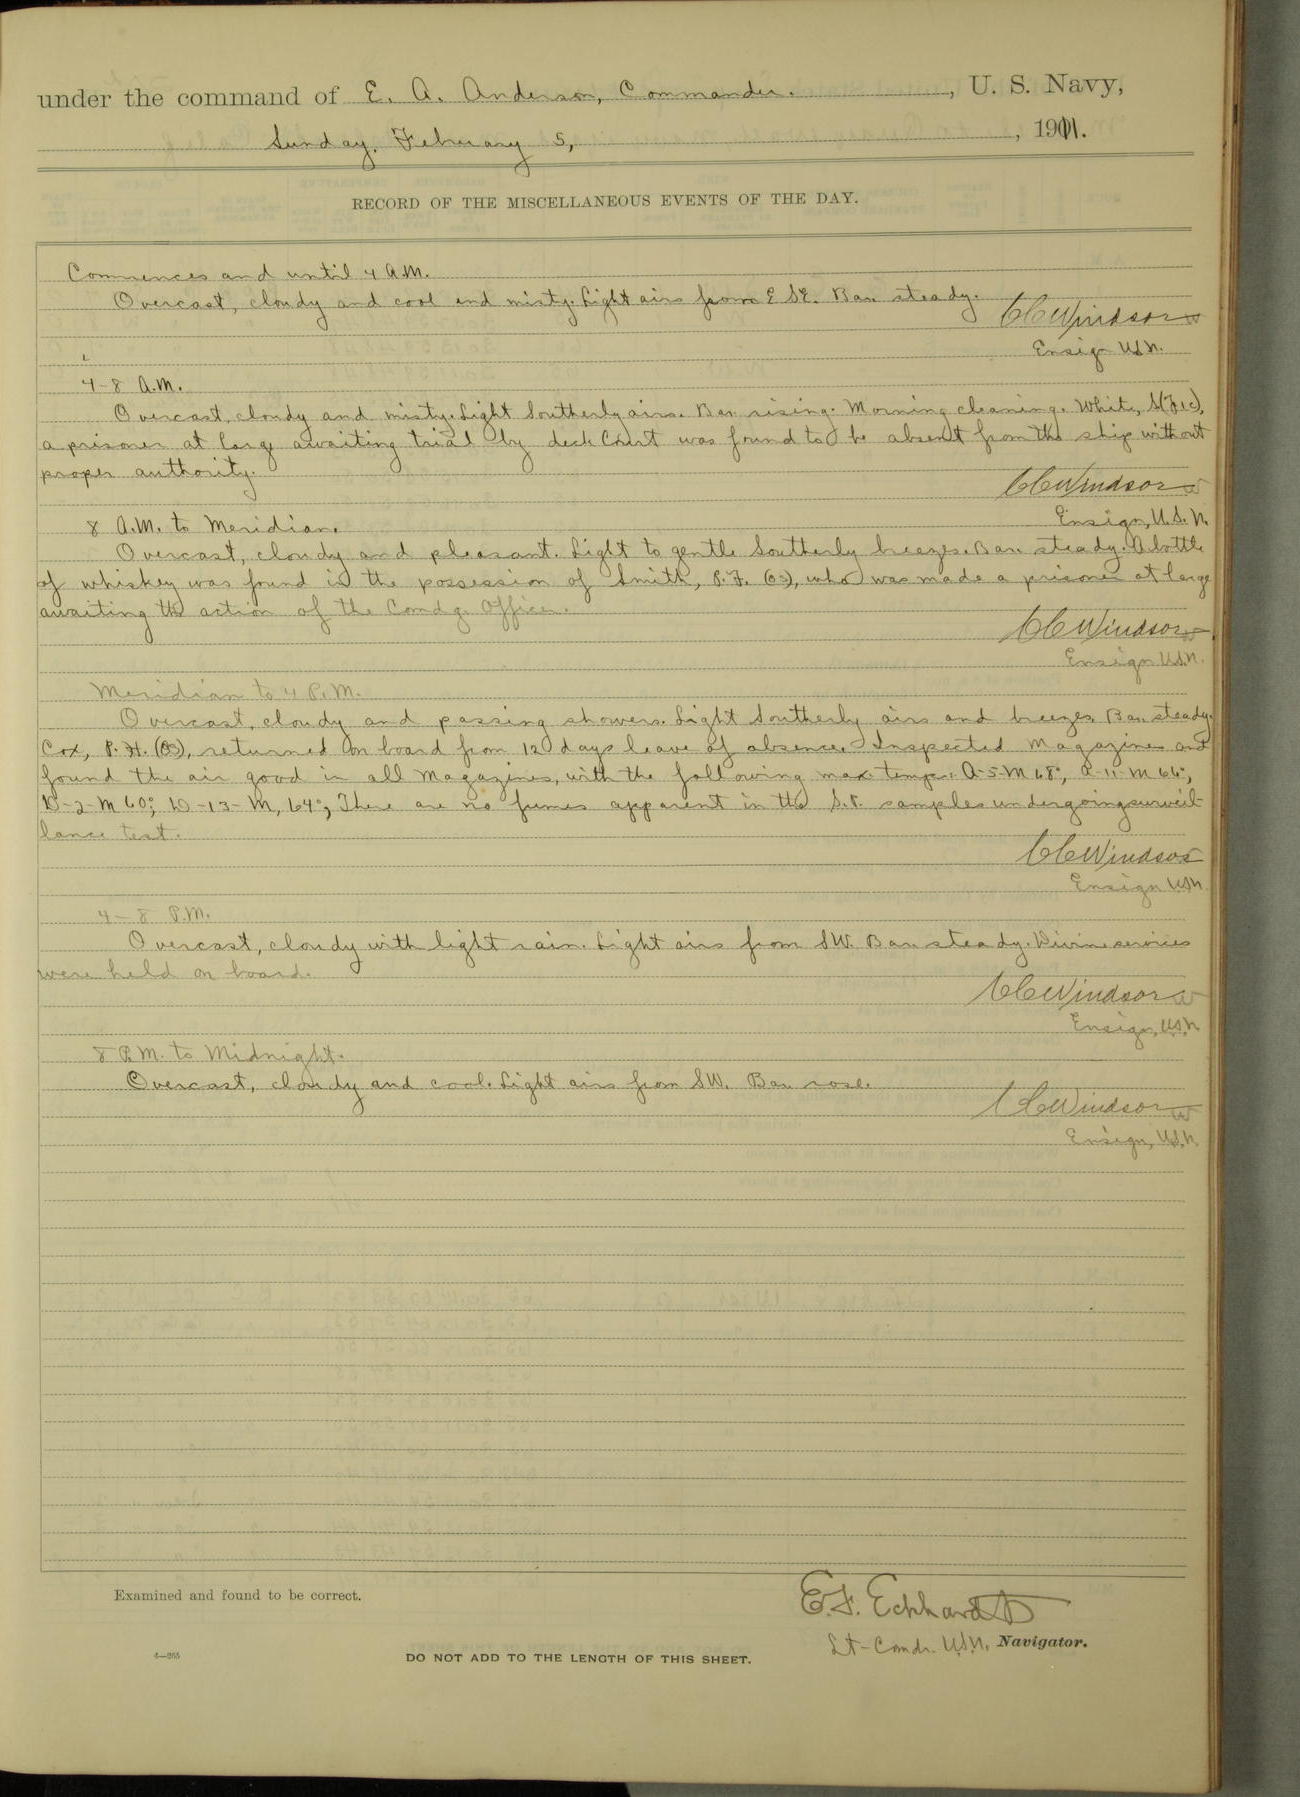 under the command of E. A. Anderson, Commander. , U. S. Navy,
Sunday, February 5, , 1911.
RECORD OF THE MISCELLANEOUS EVENTS OF THE DAY.
Commences and until 4 A.M.
Overcast, cloudy and cool and misty. Light airs from E SE. Bar. steady.
CC Windsor
Ensign USN.
4-8 A.M.
Overcast, cloudy and misty. Light Southerly airs. Bar. rising. Morning cleaning. White, S(F1c),
a prisoner at large awaiting trial by deck Court was found to be absent from the ship without
proper authority.
CC Windsor
Ensign, U.S.N.
8 A.M. to Meridian.
Overcast, cloudy and pleasant. Light to gentle Southerly breezes. Bar. steady. A bottle
of whiskey was found in the possession of Smith, P.F. (OS), who was made a prisoner at large
awaiting the action of the Comdg. Officer.
CC Windsor
Ensign U.S.N.
Meridian to 4 P.M.
Overcast, cloudy and passing showers. Light Southerly airs and breezes. Bar. steady.
Cox, P. H. (OS), returned on board from 12 days leave of absence. Inspected Magazines and
found the air good in all Magazines, with the following max temps: A-5-M 68°, A-11-M 66°,
D-2-M 60°; D-13-M, 64°, There are no fumes apparent in the S.P. samples undergoing surveil-
lance test.
CC Windsor
Ensign USN.
4-8 P.M.
Overcast, cloudy with light rain. Light airs from SW. Bar. steady. Divine services
were held on board.
CC Windsor
Ensign, U.S.N.
8 P.M. to Midnight.
Overcast, cloudy and cool. Light airs from SW. Bar. rose.
CC Windsor
Ensign, U.S.N.
Examined and found to be correct.
E. F. Eckhardt
Lt-Comdr. U.S.N. Navigator.
DO NOT ADD TO THE LENGTH OF THIS SHEET.